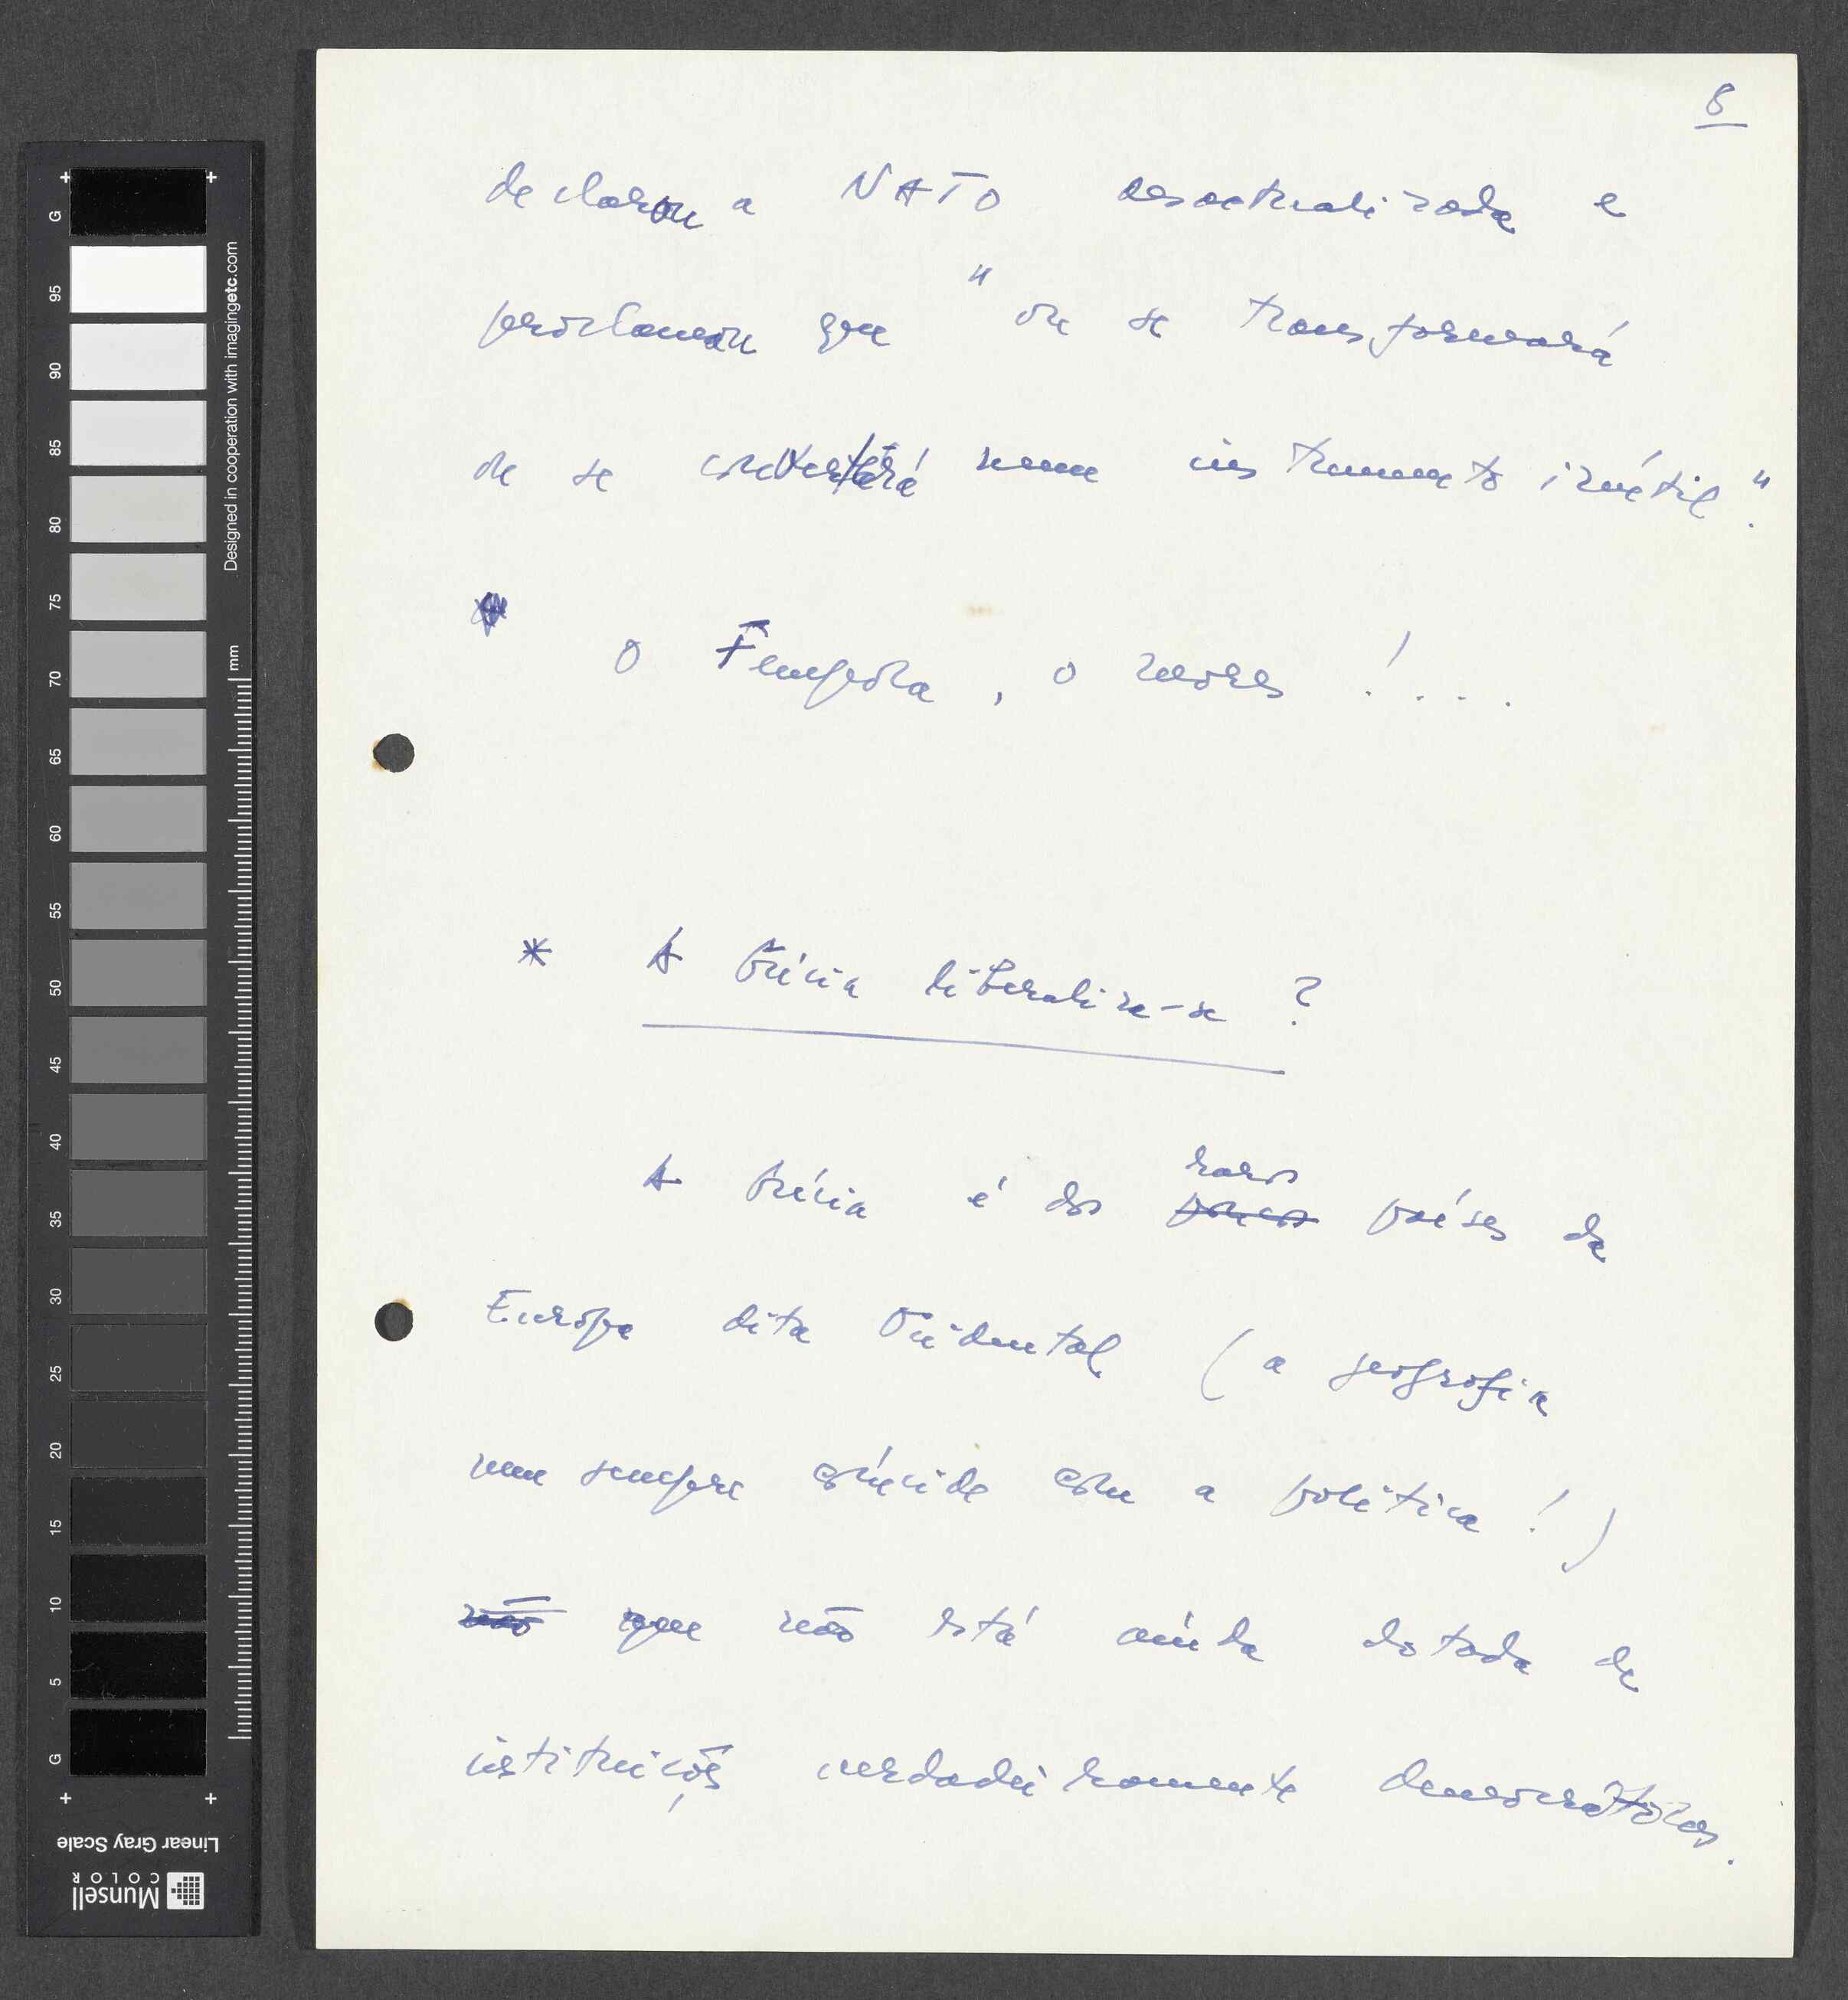 8
declarou a NATO desactualizada e
proclamou que "ou se transformará
ou se converterá num instrumento inútil".
O Tempora, o mores!...
* A Grécia liberaliza-se?
raros
A Grécia é dos poucos países da
Europa dita Ocidental (a geografia
nem sempre coincide com a política!)
não que não está ainda dotada de
instituições verdadeiramente democráticas.
G
95
90
85
80
75
70
65
60
55
50
45
40
35
30
25
20
15
10
5
G
Designed in cooperation with imagingetc.com
mm
Linear Gray Scale
Munsell
COLOR